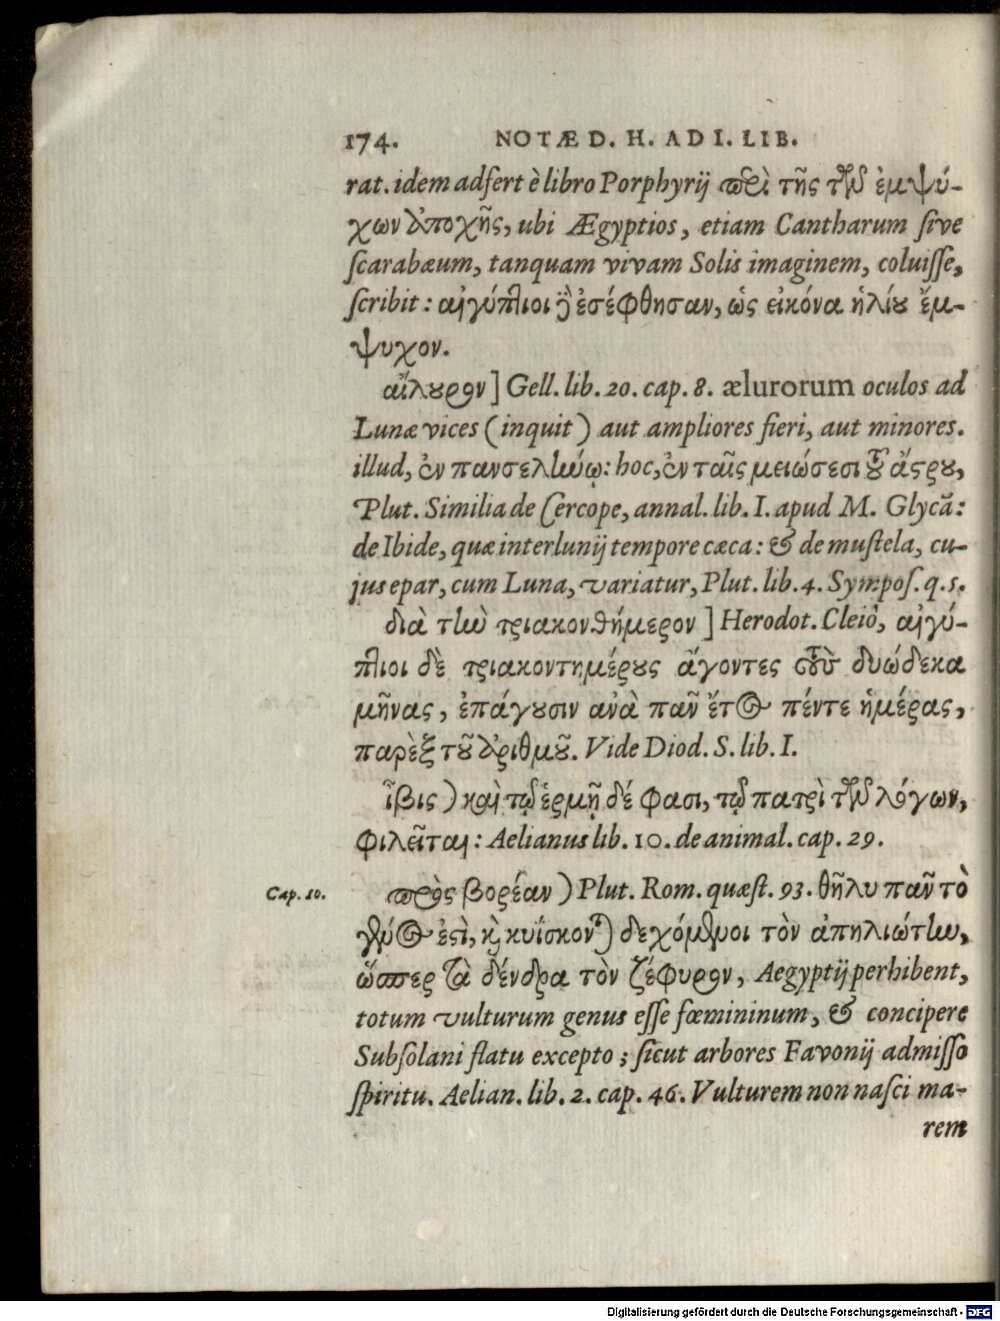 174. NOTÆ D. H. AD I. LIB.
rat. idem adfert è libro Porphyrij περὶ τῆς τῶν ἐμψύ-
χων ἀποχῆς, ubi Ægyptios, etiam Cantharum ſive
ſcarabæum, tanquam vivam Solis imaginem, coluiſſe,
ſcribit: αἰγύπτιοι ἐσέφθησαν, ὡς εἰκόνα ἡλίου ἔμ-
ψυχον.
αἴλουρον] Gell. lib. 20. cap. 8. ælurorum oculos ad
Lunæ vices (inquit) aut ampliores fieri, aut minores.
illud, ἐν πανσελήνῳ: hoc, ἐν ταῖς μειώσεσι τοῦ ἄστρου,
Plut. Similia de Cercope, annal. lib. I. apud M. Glycā:
de Ibide, quæ interlunij tempore cæca: & de muſtela, cu-
jus epar, cum Luna, variatur, Plut. lib. 4. Sympoſ. q. 5.
διὰ τὴν τριακονθήμερον] Herodot. Cleiô, αἰγύ-
πτιοι δὲ τριακοντημέρους ἄγοντες τοὺς δυώδεκα
μῆνας, ἐπάγουσιν ἀνὰ πᾶν ἔτος πέντε ἡμέρας,
παρὲξ τοῦ ἀριθμοῦ. Vide Diod. S. lib. I.
ἶβις) καὶ τῷ ἑρμῇ δέ φασι, τῷ πατρὶ τῶν λόγων,
φιλεῖται: Aelianus lib. 10. de animal. cap. 29.
Cap. 10.
πρὸς βορέαν) Plut. Rom. quæſt. 93. θῆλυ πᾶν τὸ
γένος ἐστὶ, καὶ κυΐσκονται δεχόμενοι τὸν ἀπηλιώτην,
ὥσπερ τὰ δένδρα τὸν ζέφυρον, Aegyptij perhibent,
totum vulturum genus eſſe fœmininum, & concipere
Subſolani flatu excepto; ſicut arbores Favonij admiſſo
ſpiritu. Aelian. lib. 2. cap. 46. Vulturem non naſci ma-
rem
Digitalisierung gefördert durch die Deutsche Forschungsgemeinschaft - DFG